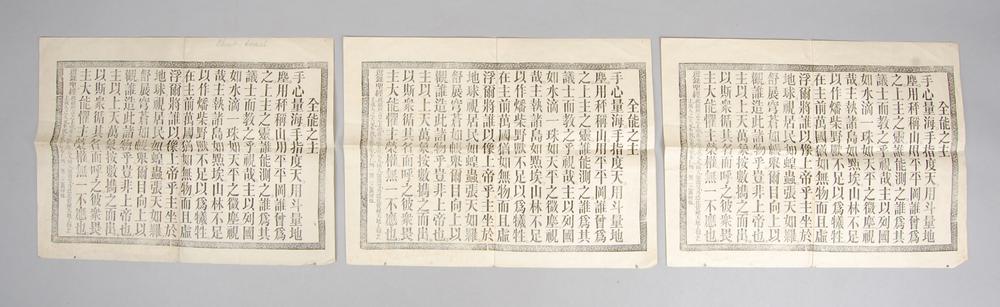 全能之主
手心量海手指度天用斗量地
塵用秤稱山用平平岡誰曾爲
之上主之靈誰能測之誰爲其
議士而教之乎視哉主以列國
如水滴一珠如天平之微塵視
哉主執諸島如點埃山林不足
以作燔柴野獸不足以爲犧牲
在主前萬國猶如無物而且虛
浮爾將誰以像上帝乎主坐於
地球視居民如蝗蟲張天如羅
舒展穹蒼如帳衆爾目向上以
觀誰造此諸物乎豈非上帝也
主以上天萬象按數攜之而出
以斯衆循其名而呼之彼衆畏
主大能懼主勢權無一不應也
全能之主
手心量海手指度天用斗量地
塵用秤稱山用平平岡誰曾爲
之上主之靈誰能測之誰爲其
議士而教之乎視哉主以列國
如水滴一珠如天平之微塵視
哉主執諸島如點埃山林不足
以作燔柴野獸不足以爲犧牲
在主前萬國猶如無物而且虛
浮爾將誰以像上帝乎主坐於
地球視居民如蝗蟲張天如羅
舒展穹蒼如帳衆爾目向上以
觀誰造此諸物乎豈非上帝也
主以上天萬象按數攜之而出
以斯衆循其名而呼之彼衆畏
主大能懼主勢權無一不應也
全能之主
手心量海手指度天用斗量地
塵用秤稱山用平平岡誰曾爲
之上主之靈誰能測之誰爲其
議士而教之乎視哉主以列國
如水滴一珠如天平之微塵視
哉主執諸島如點埃山林不足
以作燔柴野獸不足以爲犧牲
在主前萬國猶如無物而且虛
浮爾將誰以像上帝乎主坐於
地球視居民如蝗蟲張天如羅
舒展穹蒼如帳衆爾目向上以
觀誰造此諸物乎豈非上帝也
主以上天萬象按數攜之而出
以斯衆循其名而呼之彼衆畏
主大能懼主勢權無一不應也